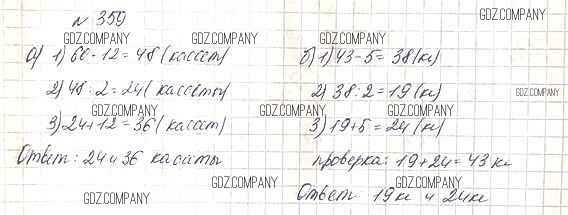 № 359
GDZ.COMPANY
GDZ.COMPANY
GDZ.COMPANY
а) 1) 60 - 12 = 48 (кассет)
2) 48 : 2 = 24 (кассеты)
GDZ.COMPANY
GDZ.COMPANY
3) 24 + 12 = 36 (кассет)
Ответ: 24 и 36 кассеты
GDZ.COMPANY
б) 1) 43 - 5 = 38 (кг)
2) 38 : 2 = 19 (кг)
GDZ.COMPANY
GDZ.COMPANY
GDZ.COMPANY
3) 19 + 5 = 24 (кг)
проверка: 19 + 24 = 43 кг
GDZ.COMPANY
GDZ.COMPANY
Ответ 19 кг и 24 кг